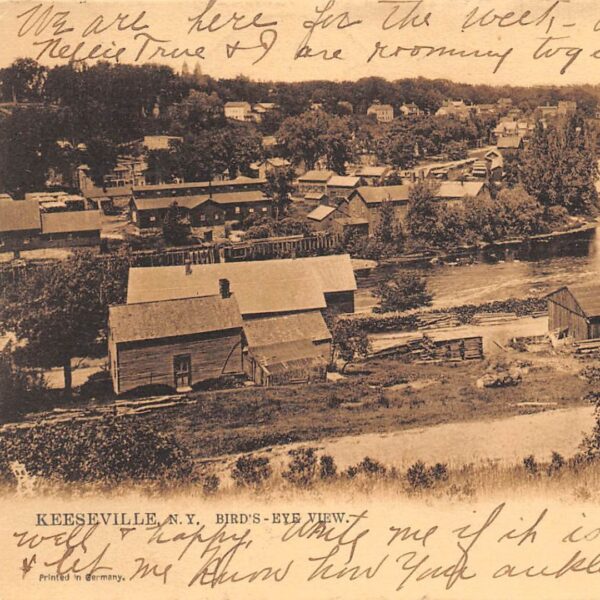 We are here for the week- a
Nellie True & I are rooming toge
KEESEVILLE, N.Y. BIRD'S-EYE VIEW.
well & happy, Write me if it is
& let me know how your ankle
Printed in Germany.